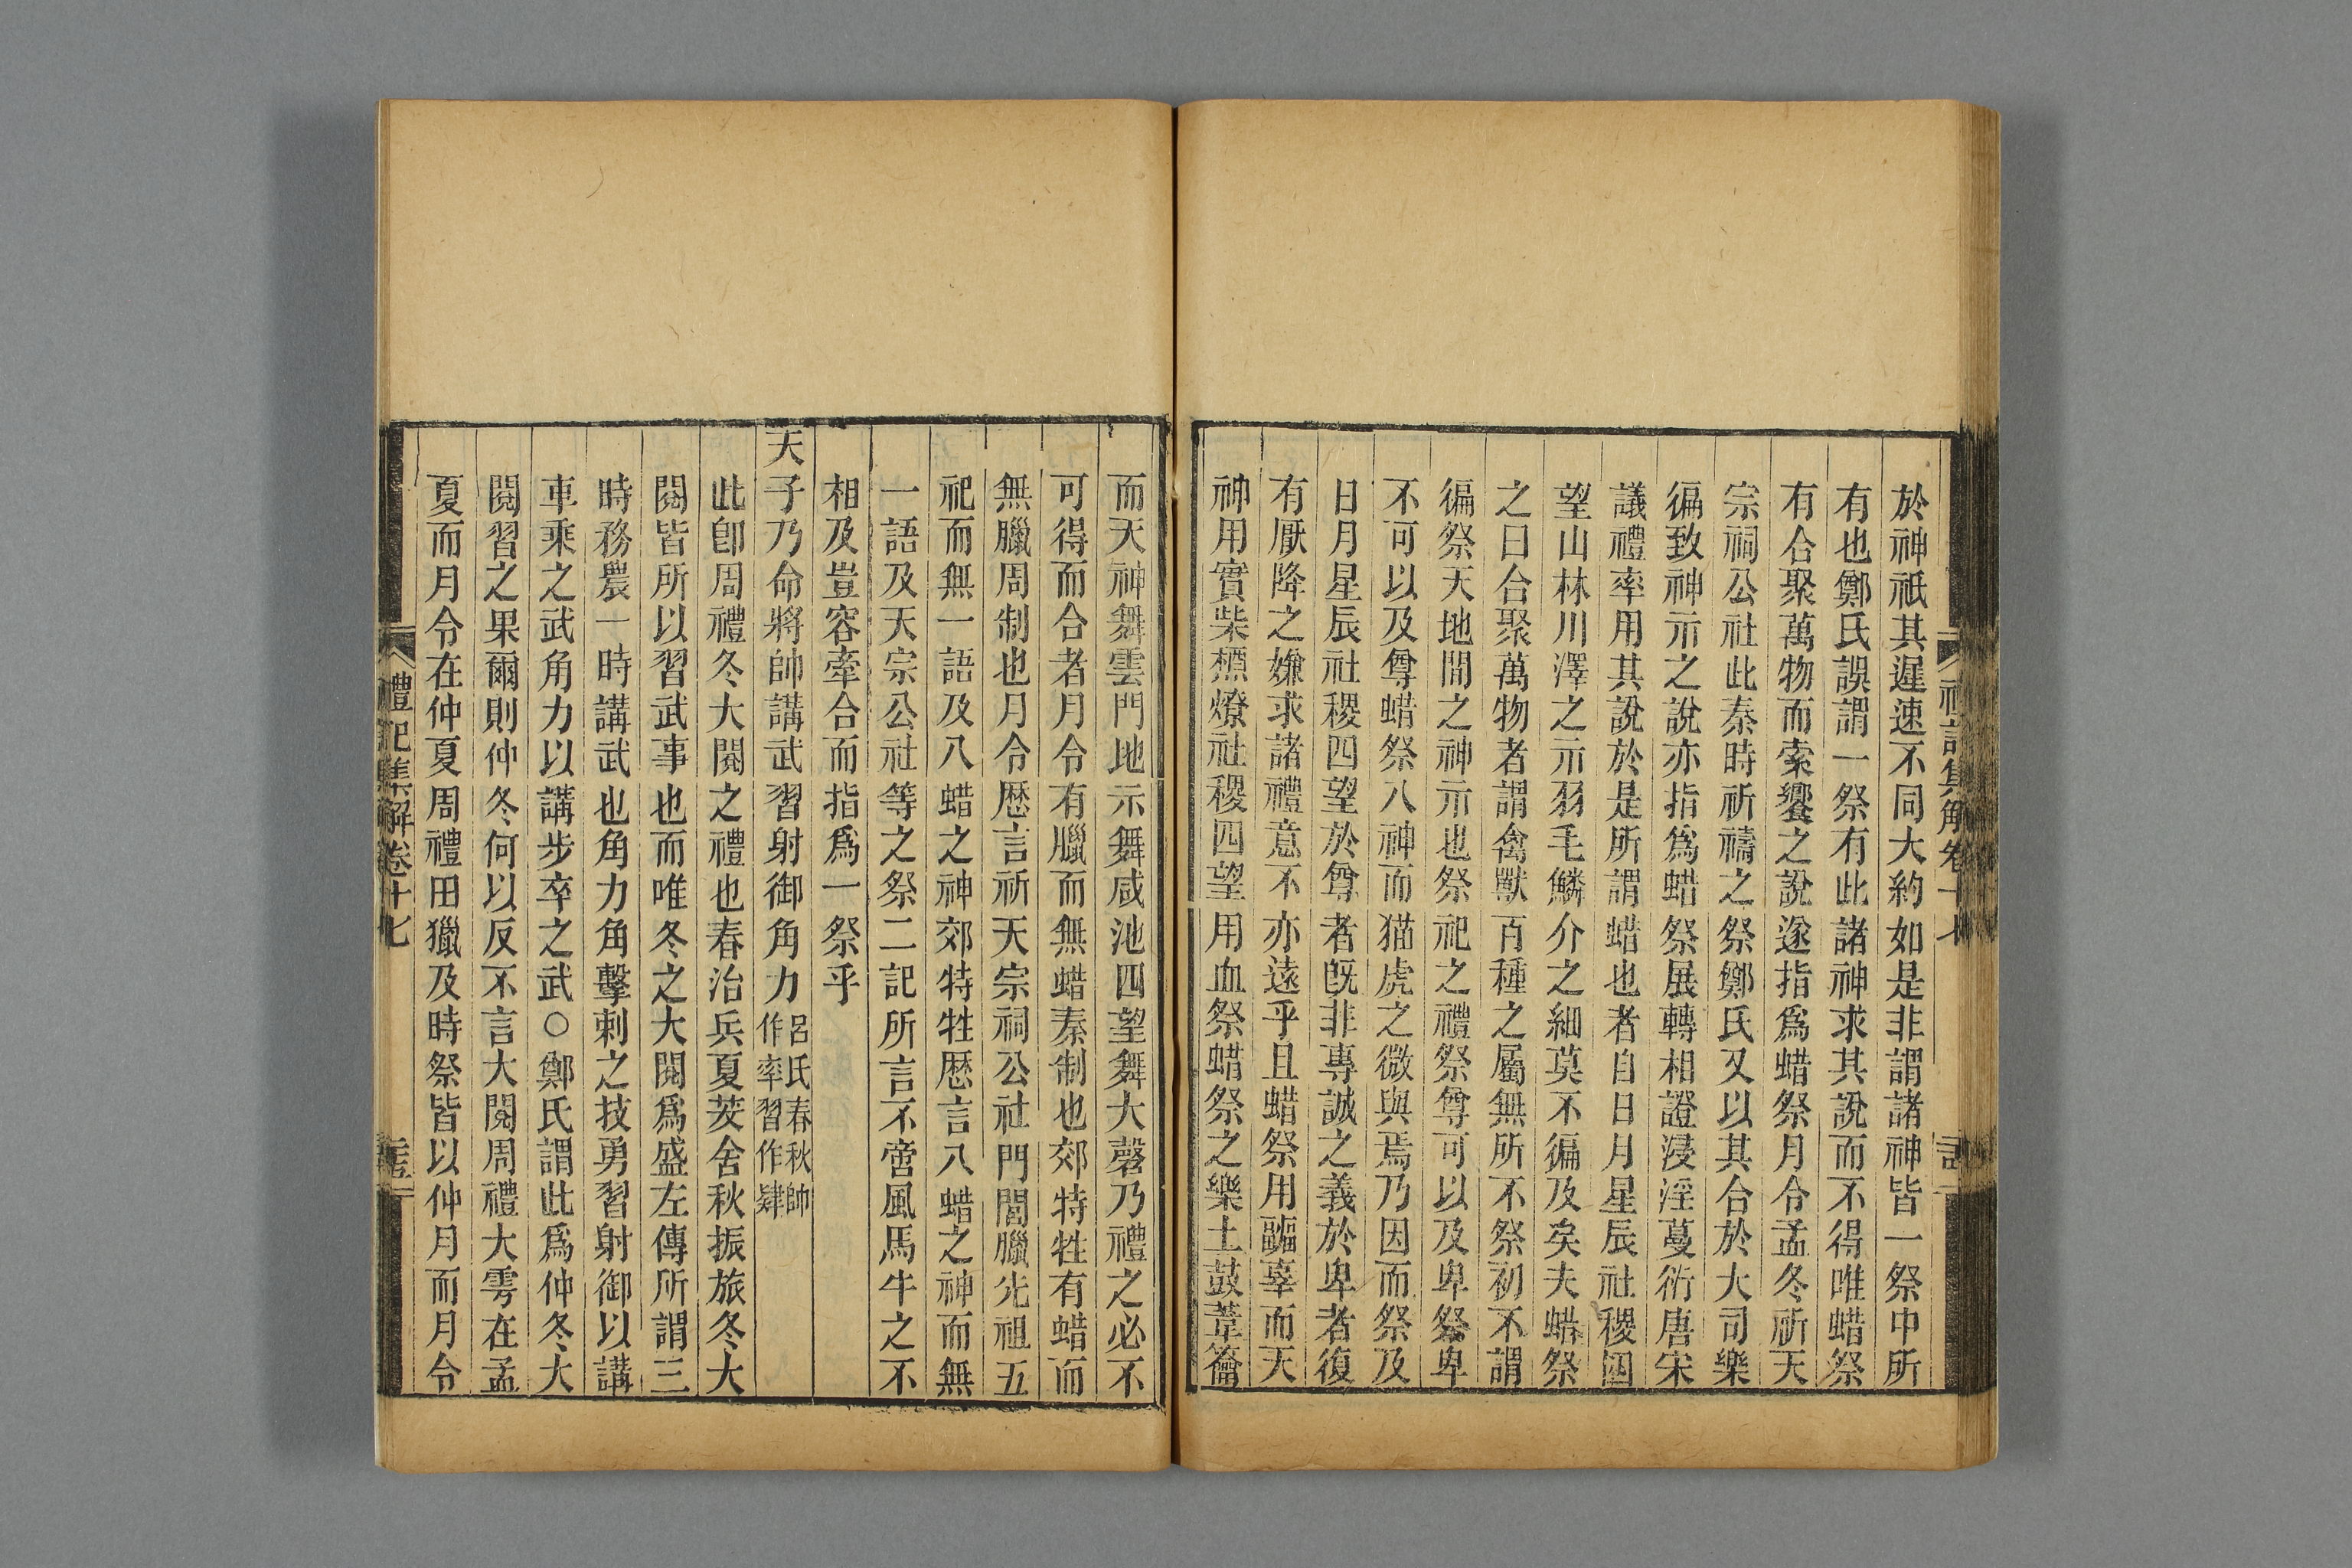 於神祇其遲速不同大約如是非謂諸神皆一祭中所
有也鄭氏誤謂一祭有此諸神求其說而不得唯蜡祭
有合聚萬物而索饗之說遂指爲蜡祭月令孟冬祈天
宗祠公社此秦時祈禱之祭鄭氏又以其合於大司樂
徧致神示之說亦指爲蜡祭展轉相證浸淫蔓衍唐宋
議禮率用其說於是所謂蜡也者自日月星辰社稷四
望山林川澤之示羽毛鱗介之細莫不徧及矣夫蜡祭
之曰合聚萬物者謂禽獸百種之屬無所不祭初不謂
徧祭天地間之神示也祭祀之禮祭尊可以及卑祭卑
不可以及尊蜡祭八神而猫虎之微與焉乃因而祭及
日月星辰社稷四望於尊者旣非專誠之義於卑者復
有厭降之嫌求諸禮意不亦遠乎且蜡祭用疈辜而天
神用實柴槱燎社稷四望用血祭蜡祭之樂土鼓葦籥
而天神舞雲門地示舞咸池四望舞大磬乃禮之必不
可得而合者月令有臘而無蜡秦制也郊特牲有蜡而
無臘周制也月令歷言祈天宗祠公社門閭臘先祖五
祀而無一語及八蜡之神郊特牲歷言八蜡之神而無
一語及天宗公社等之祭二記所言不啻風馬牛之不
相及豈容牽合而指爲一祭乎
天子乃命將帥講武習射御角力呂氏春秋帥作率習作肄
此卽周禮冬大閱之禮也春治兵夏茇舍秋振旅冬大
閱皆所以習武事也而唯冬之大閱爲盛左傳所謂三
時務農一時講武也角力角擊刺之技勇習射御以講
車乘之武角力以講步卒之武○鄭氏謂此爲仲冬大
閱習之果爾則仲冬何以反不言大閱周禮大雩在孟
夏而月令在仲夏周禮田獵及時祭皆以仲月而月令
禮記集解卷十七